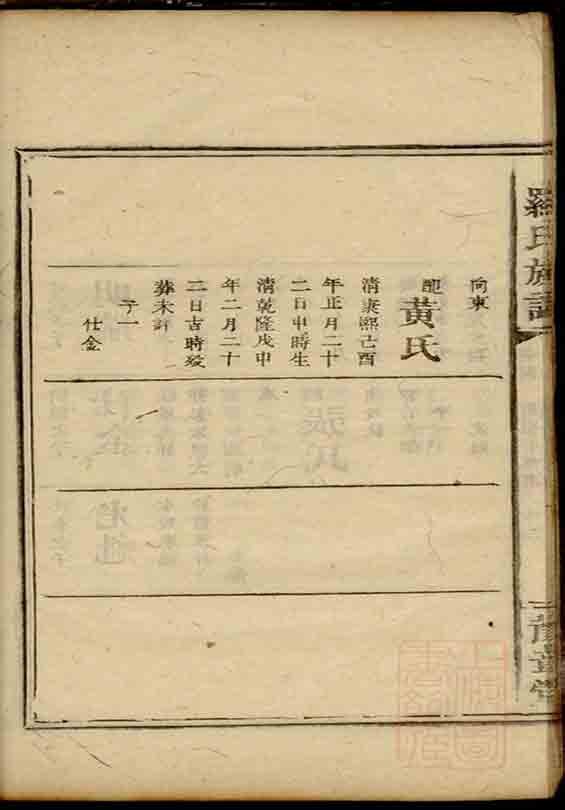 羅氏族譜
向東
配黃氏
清康熙己酉
年正月二十
二日申時生
清乾隆戊申
年二月二十
二日吉時歿
葬未詳
子一
仕金
豫章堂